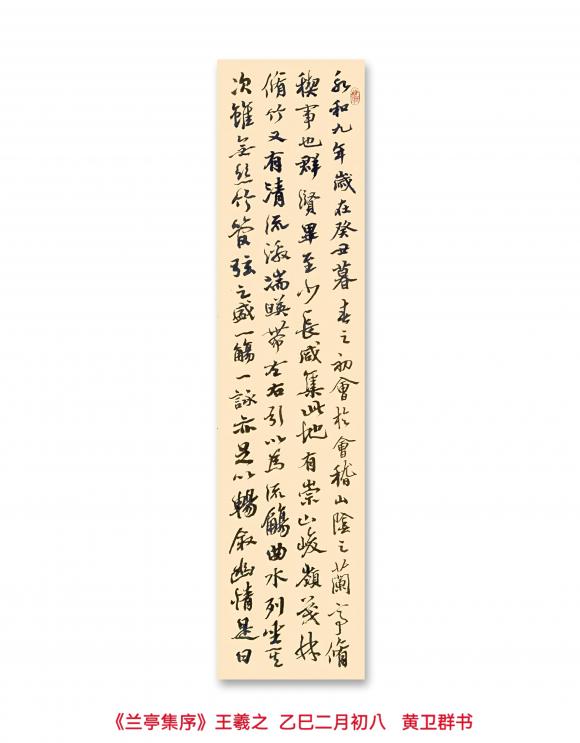 永和九年歲在癸丑暮春之初會於會稽山陰之蘭亭脩
稧事也群賢畢至少長咸集此地有崇山峻嶺茂林
脩竹又有清流激湍暎帶左右引以為流觴曲水列坐其
次雖無絲竹管弦之盛一觴一詠亦足以暢叙幽情是日
《兰亭集序》王羲之 乙巳二月初八 黄卫群书